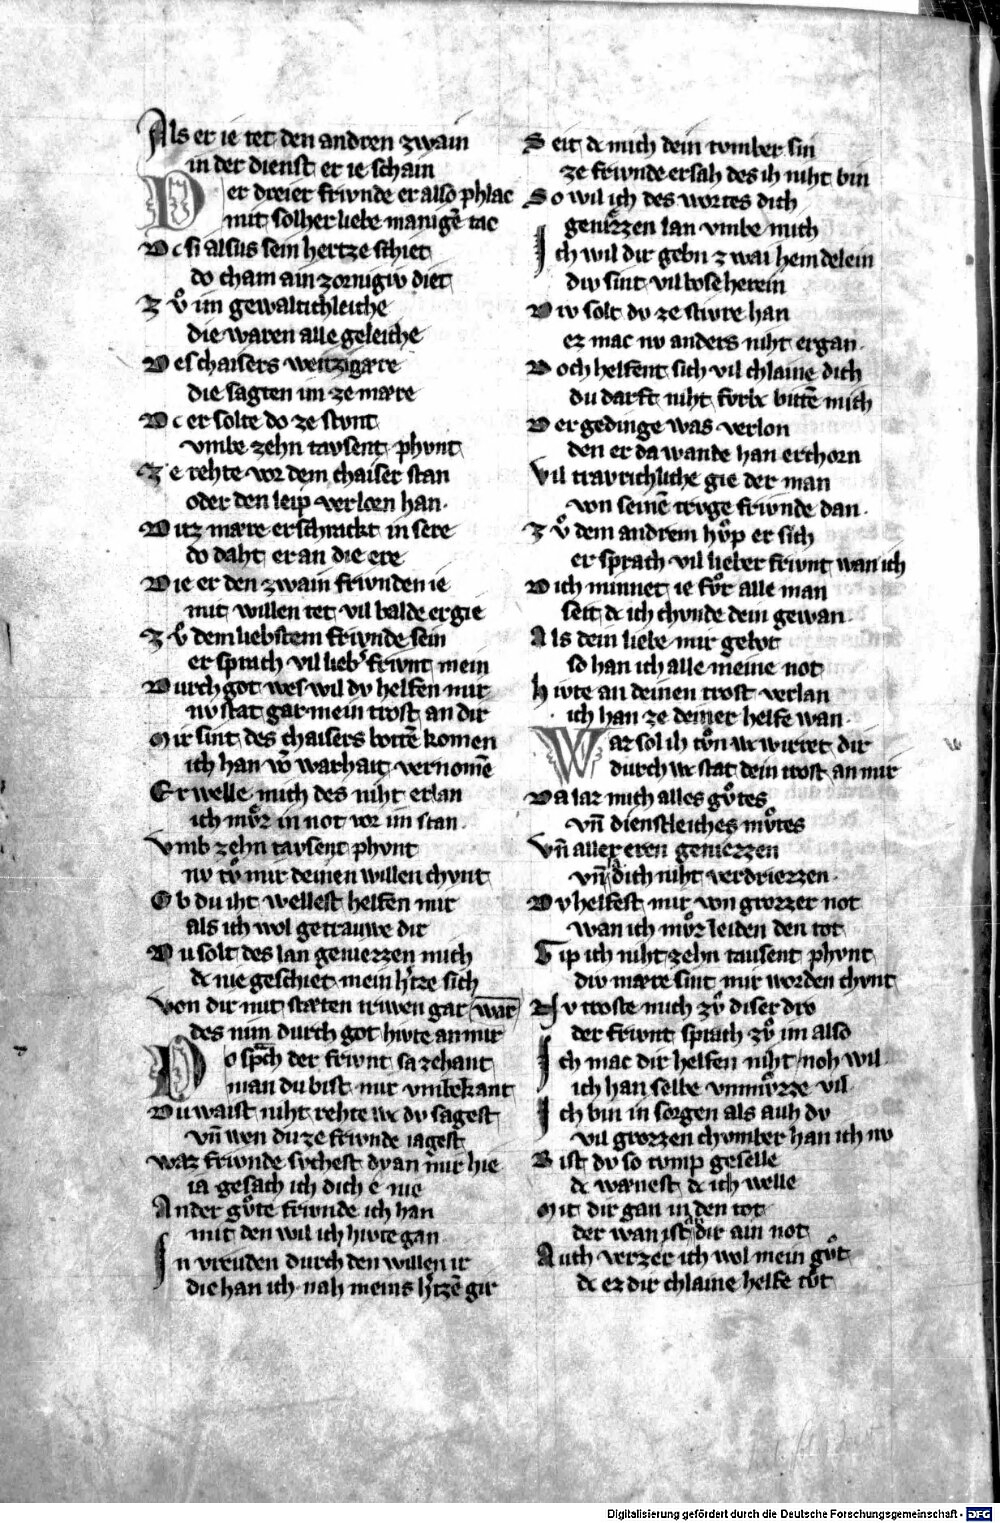 Als er ie tet den andren zwain
in der dienst er ie schain
Der dreier friwnde er also phlac
mit solher liebe manigē tac
Dc si alsus sein hertze schiet
do cham ain zornigiv diet
Zvͦ im gewaltichleiche
die waren alle geleiche
Des chaisers weitzigære
die sagten im ze mære
Dc er solte do ze stvnt
vmbe zehn tavsent phvnt
Ze rehte vor dem chaiser stan
oder den leip verlorn han.
Ditz mære erschrackt in sere
do daht er an die ere
Die er den zwain friwnden ie
mit willen tet vil balde er gie
Zvͦ dem liebstem friwnde sein
er sprach vil liebˢ friwnt mein
Durch got wes wil dv helfen mir
nv stat gar mein trost an dir
Mir sint des chaisers bottē komen
ich han vō warhait vernomē
Er welle mich des niht erlan
ich mvͦz in not vor im stan.
Vmb zehn tavsent phvnt
nv tvͦ mir deinen willen chvnt
Ob du iht wellest helfen mir
als ich wol getrauwe dir
Du solt des lan geniezzen mich
dc nie geschiet mein hˢtze sich
Von dir mit stæten triwen gar war
des nim durch got hivte an mir
Do spͣch der friwnt sa zehant
man du bist mir vmbekant
Du waist niht rehte wc dv sagest
vn̄ wen du ze friwnde iagest
Waz friwnde svchest dv an mir hie
ia gesach ich dich e nie
Ander gvͦte friwnde ich han
mit den wil ich hivte gan
In vreuden durch den willen ir
die han ich nah meins hˢtzē gir
Seit dc mich dein tvmber sin
ze friwnde ersah des ih niht bin
So wil ich des wortes dich
geniezzen lan vmbe mich
Ich wil dir gebn zwai hemdelein
div sint vil bose herein
Div solt dv ze stivre han
ez mac nv anders niht ergan.
Doch helfent sich vil chlaine dich
du darft niht fvrbz bittē mich
Der gedinge was verlorn
den er da wande han erchorn
Vil travrichliche gie der man
von seinē trvge friwnde dan.
Zvͦ dem andrem hvͦp er sich
er sprach vil lieber friwnt wan ich
Dich minnet ie fvͦr alle man
seit dc ich chvnde dein gewan.
Als dein liebe mir gebot
so han ich alle meine not
Hivte an deinen trost verlan
ich han ze deiner helfe wan.
Waz sol ih tvͦn wc wirret dir
durch wc stat dein trost an mir
Da laz mich alles gvͦtes
vn̄ dienstleiches mvͦtes
Vn̄ aller eren geniezzen
vn̄ la dich niht verdriezzen.
Dv helfest mir von grozzer not
wan ich mvͦz leiden den tot
Gip ich niht zehn tausent phvnt
div mære sint mir worden chvnt
Nv troste mich zvͦ diser dro
der friwnt sprach zvͦ im also
Ich mac dir helfen niht noh wil
ich han selbe vnmvͦzze vil
Ich bin in sorgen als auh dv
vil grozzen chvmber han ich nv
Bist dv so tvmp geselle
dc wænest dc ich welle
Mit dir gan in den tot
der wan ist dir ain not
Auch verzer ich wol mein gvͦt
dc ez dir chlaine helfe tvͦt
Digitalisierung gefördert durch die Deutsche Forschungsgemeinschaft - DFG